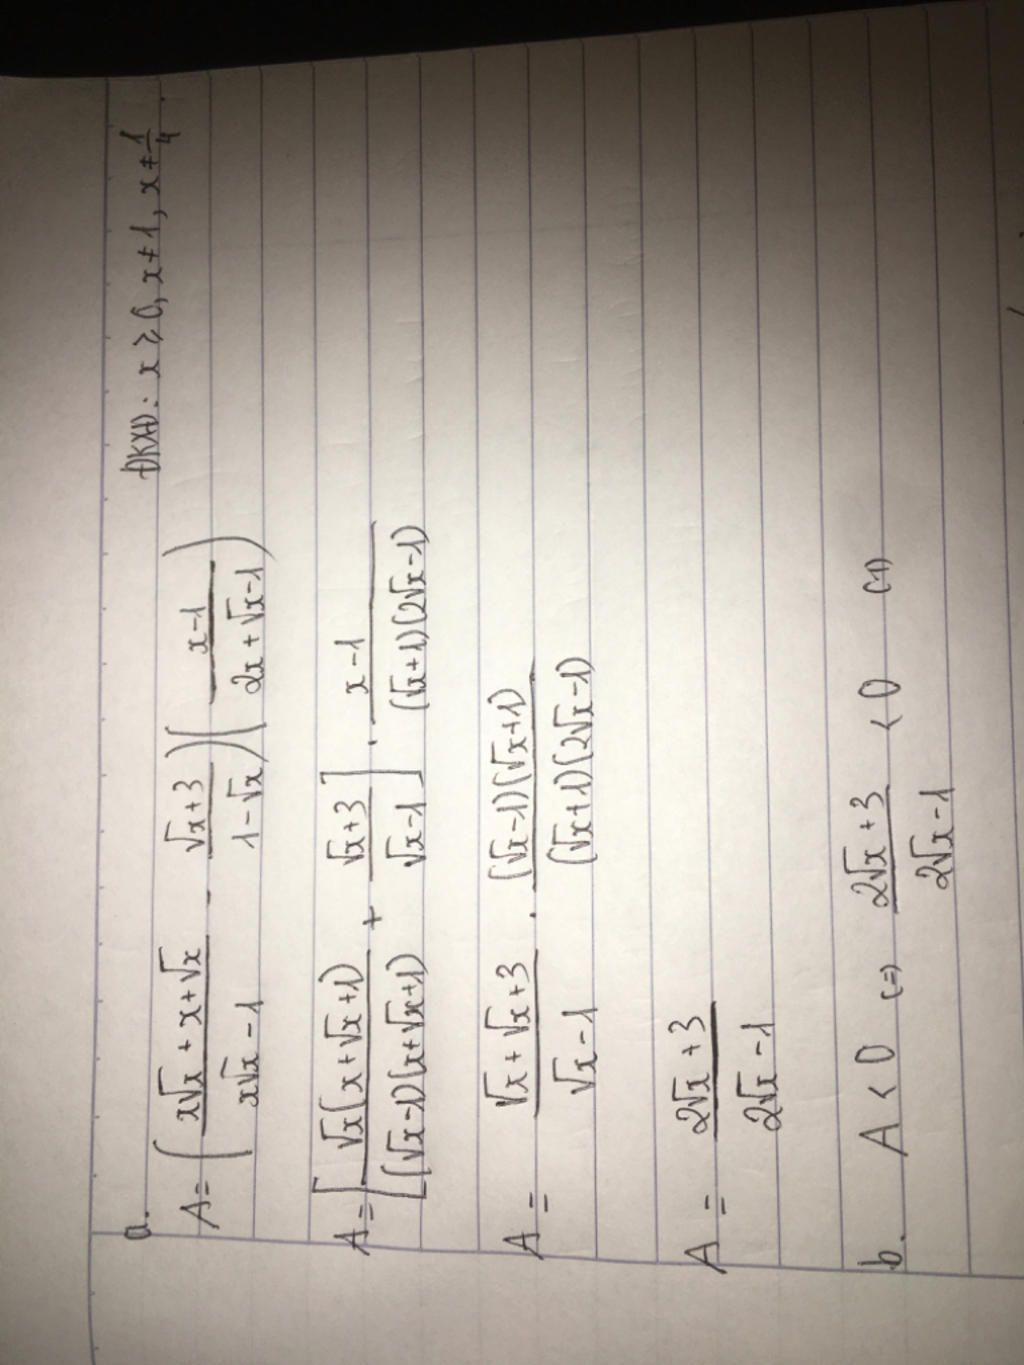 a. ĐKXĐ: x ⩾ 0, x ≠ 1, x ≠ 1/4.
A = ( (x√x + x + √x)/(x√x - 1) - (√x + 3)/(1 - √x) ) ( (x - 1)/(2x + √x - 1) )
A = [ (√x(x + √x + 1))/((√x - 1)(x + √x + 1)) + (√x + 3)/(√x - 1) ] . (x - 1)/((√x + 1)(2√x - 1))
A = (√x + √x + 3)/(√x - 1) . ((√x - 1)(√x + 1))/((√x + 1)(2√x - 1))
A = (2√x + 3)/(2√x - 1)
b. A < 0 (=) (2√x + 3)/(2√x - 1) < 0 (1)